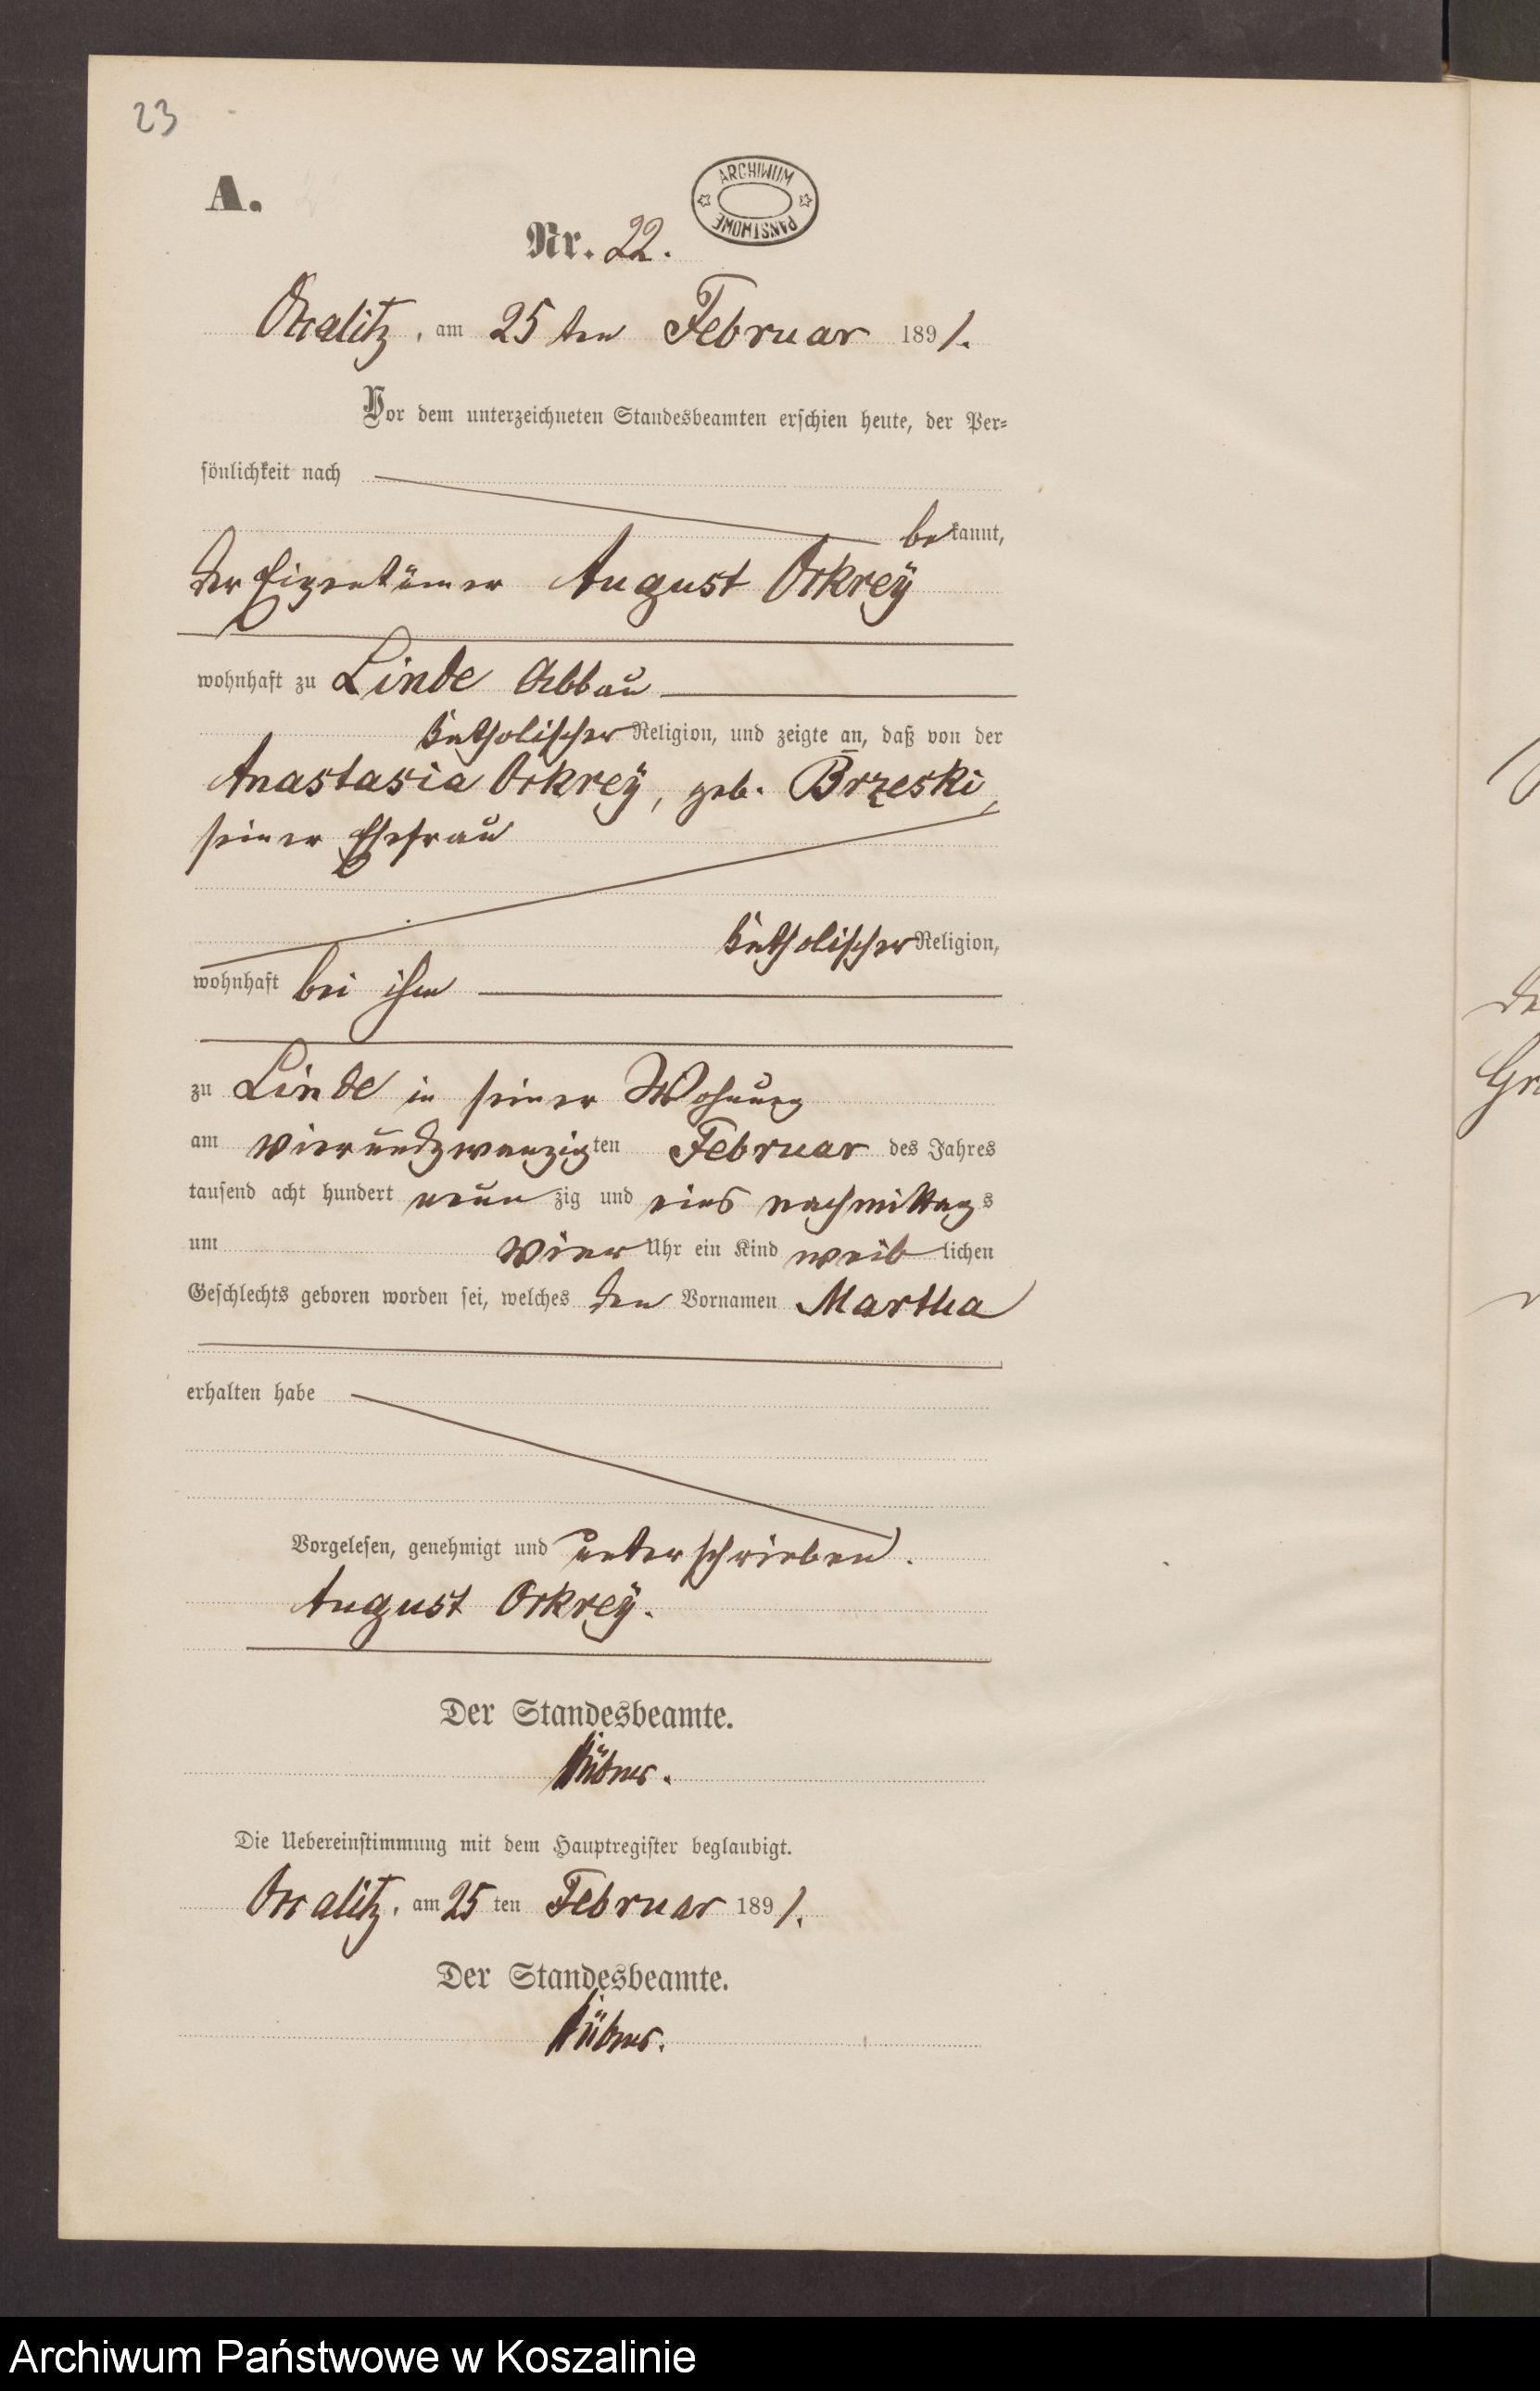 23
A.
ARCHIWUM PAŃSTWOWE
Nr. 22.
am 25 ten Februar 1891.
Vor dem unterzeichneten Standesbeamten erschien heute, der Per-
sönlichkeit nach
bekannt,
der Eigentümer August Orkrey
wohnhaft zu Linde Abbau
katholischer Religion, und zeigte an, daß von der
Anastasia Orkrey, geb. Brzeski,
seiner Ehefrau
katholischer Religion,
wohnhaft bei ihm
zu Linde in seiner Wohnung
am vierundzwanzigten Februar des Jahres
tausend acht hundert neunzig und eins nachmittags
um vier Uhr ein Kind weiblichen
Geschlechts geboren worden sei, welches den Vornamen Martha
erhalten habe
Vorgelesen, genehmigt und unterschrieben.
August Orkrey.
Der Standesbeamte.
Die Uebereinstimmung mit dem Hauptregister beglaubigt.
am 25 ten Februar 1891.
Der Standesbeamte.
Archiwum Państwowe w Koszalinie